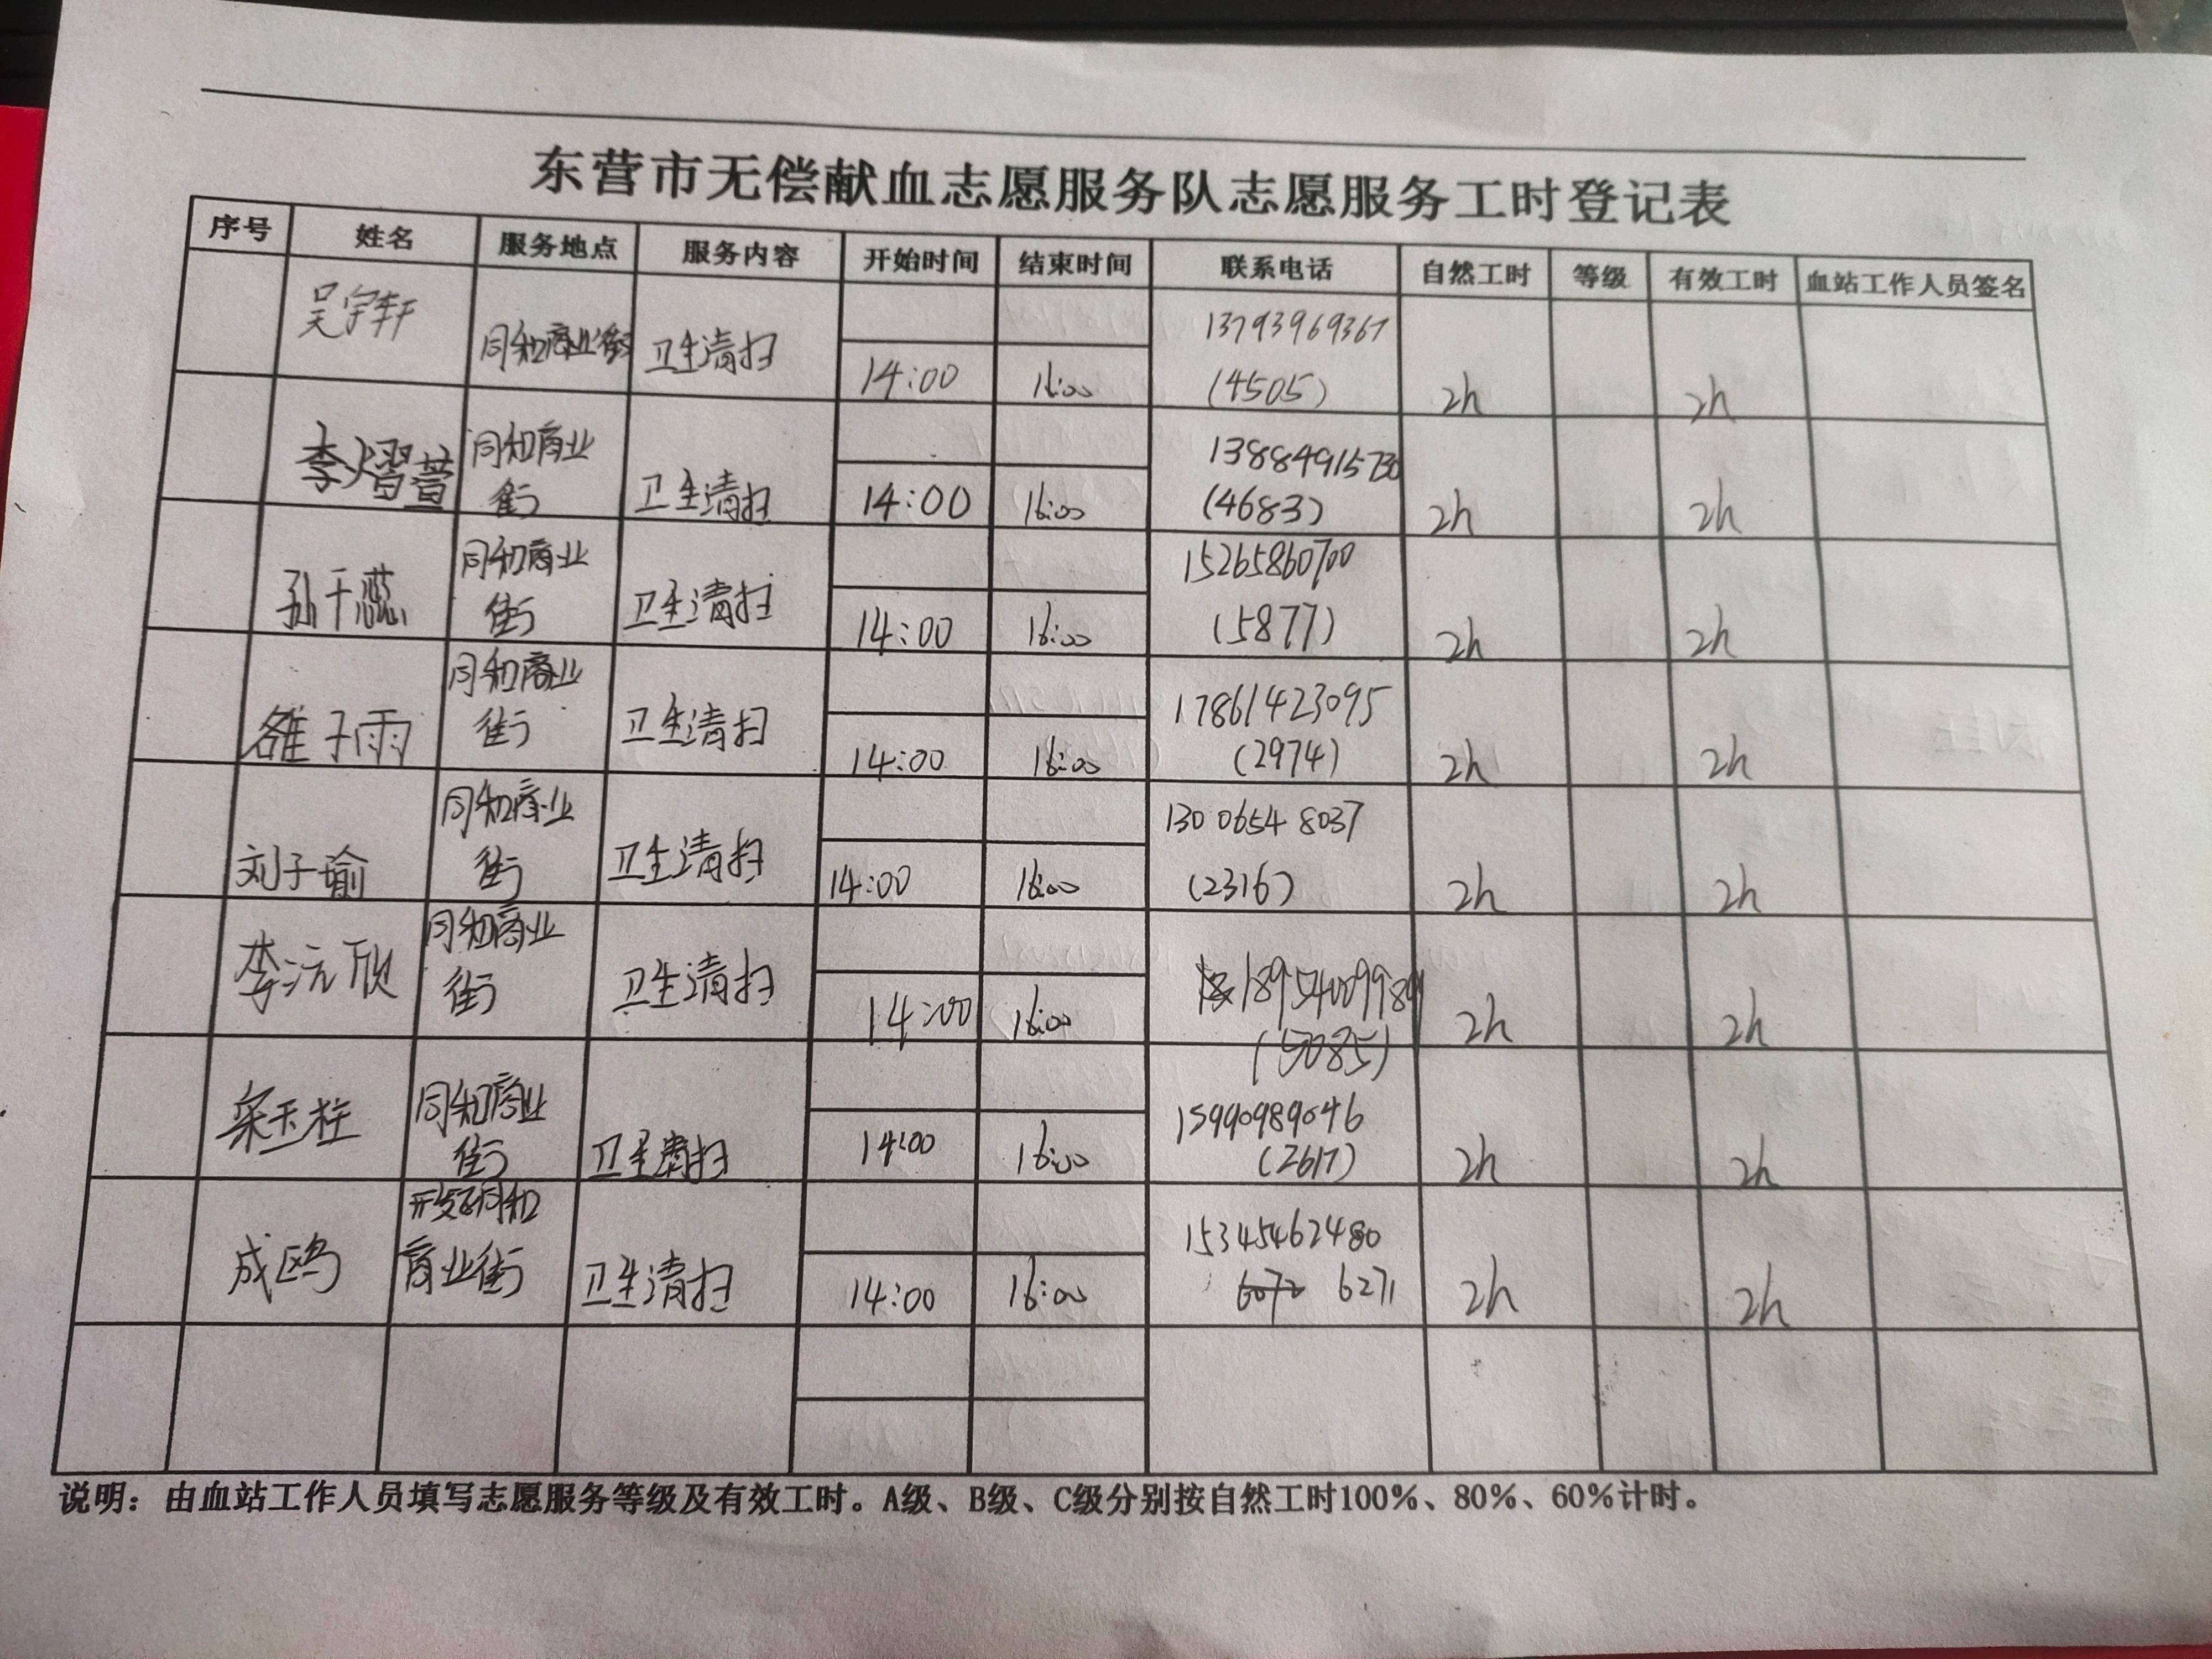 东营市无偿献血志愿服务队志愿服务工时登记表
序号 姓名 服务地点 服务内容 开始时间 结束时间 联系电话 自然工时 等级 有效工时 血站工作人员签名
吴宇轩 同和商业街 卫生清扫 14:00 16:00 13793969367
(4505) 2h 2h
李熠萱 同和商业
街 卫生清扫 14:00 16:00 13884915730
(4683) 2h 2h
孙千蕊 同和商业
街 卫生清扫 14:00 16:00 15265860700
(5877) 2h 2h
雒子雨 同和商业
街 卫生清扫 14:00 16:00 17861423095
(2974) 2h 2h
刘子瑜 同和商业
街 卫生清扫 14:00 16:00 130 0654 8037
(2316) 2h 2h
李沅欣 同和商业
街 卫生清扫 14:00 16:00 18954009989
(5085) 2h 2h
梁玉柱 同和商业
街 卫生清扫 14:00 16:00 15990989046
(2617) 2h 2h
成鸥 同和
商业街 卫生清扫 14:00 16:00 15345462480
6271 2h 2h
说明：由血站工作人员填写志愿服务等级及有效工时。A级、B级、C级分别按自然工时100%、80%、60%计时。